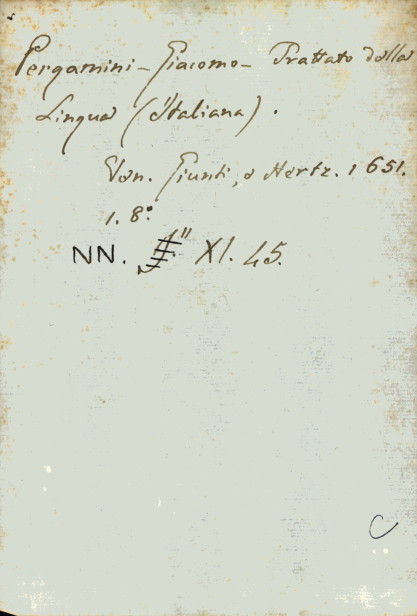 Pergamini - Giacomo - Trattato della
Lingua (Italiana).
Ven. Giunti, e Hertz. 1651.
1. 8.°
NN. XI. 45.
C